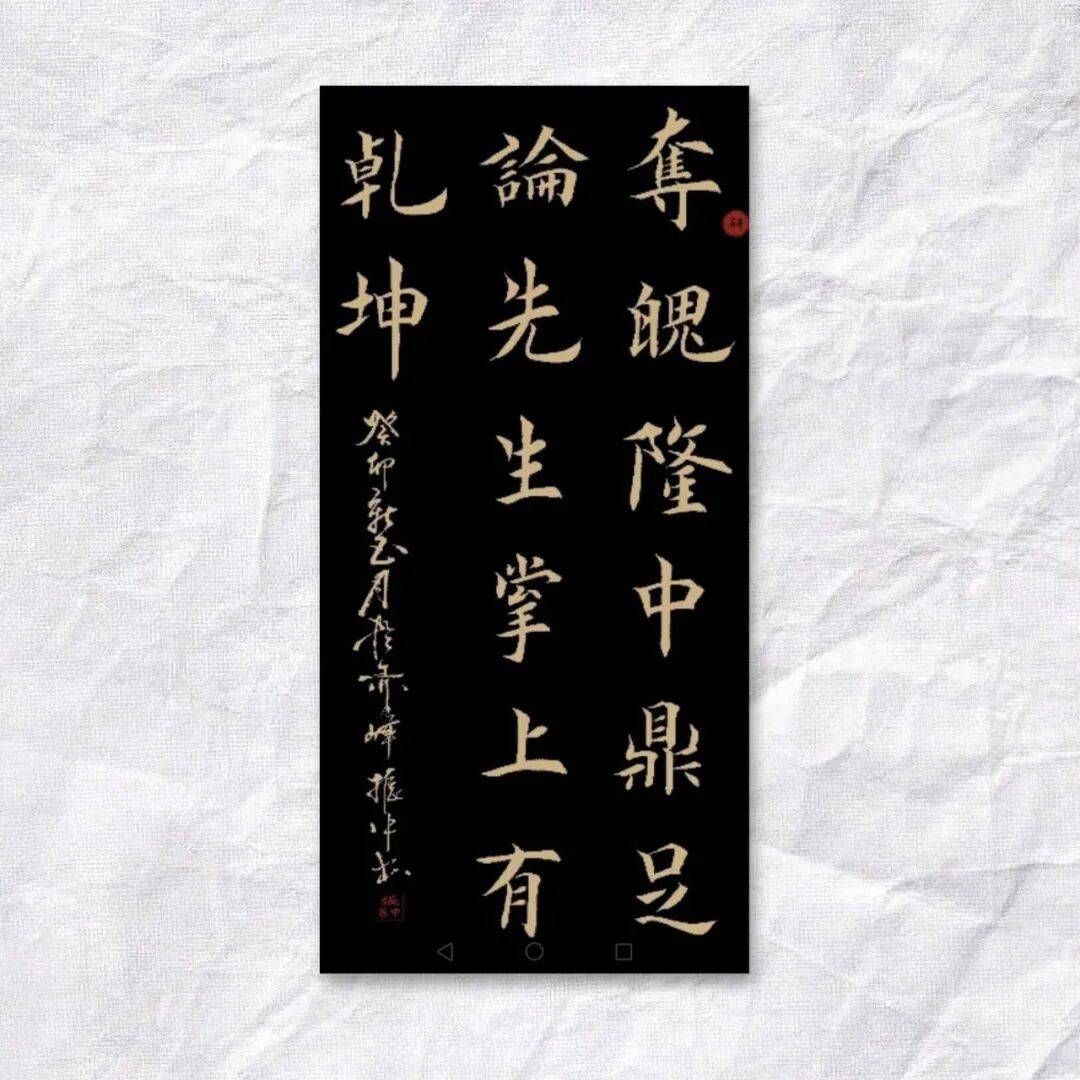 奪魄隆中鼎足
論先生掌上有
乾坤
癸卯新正月於赤峰振中書